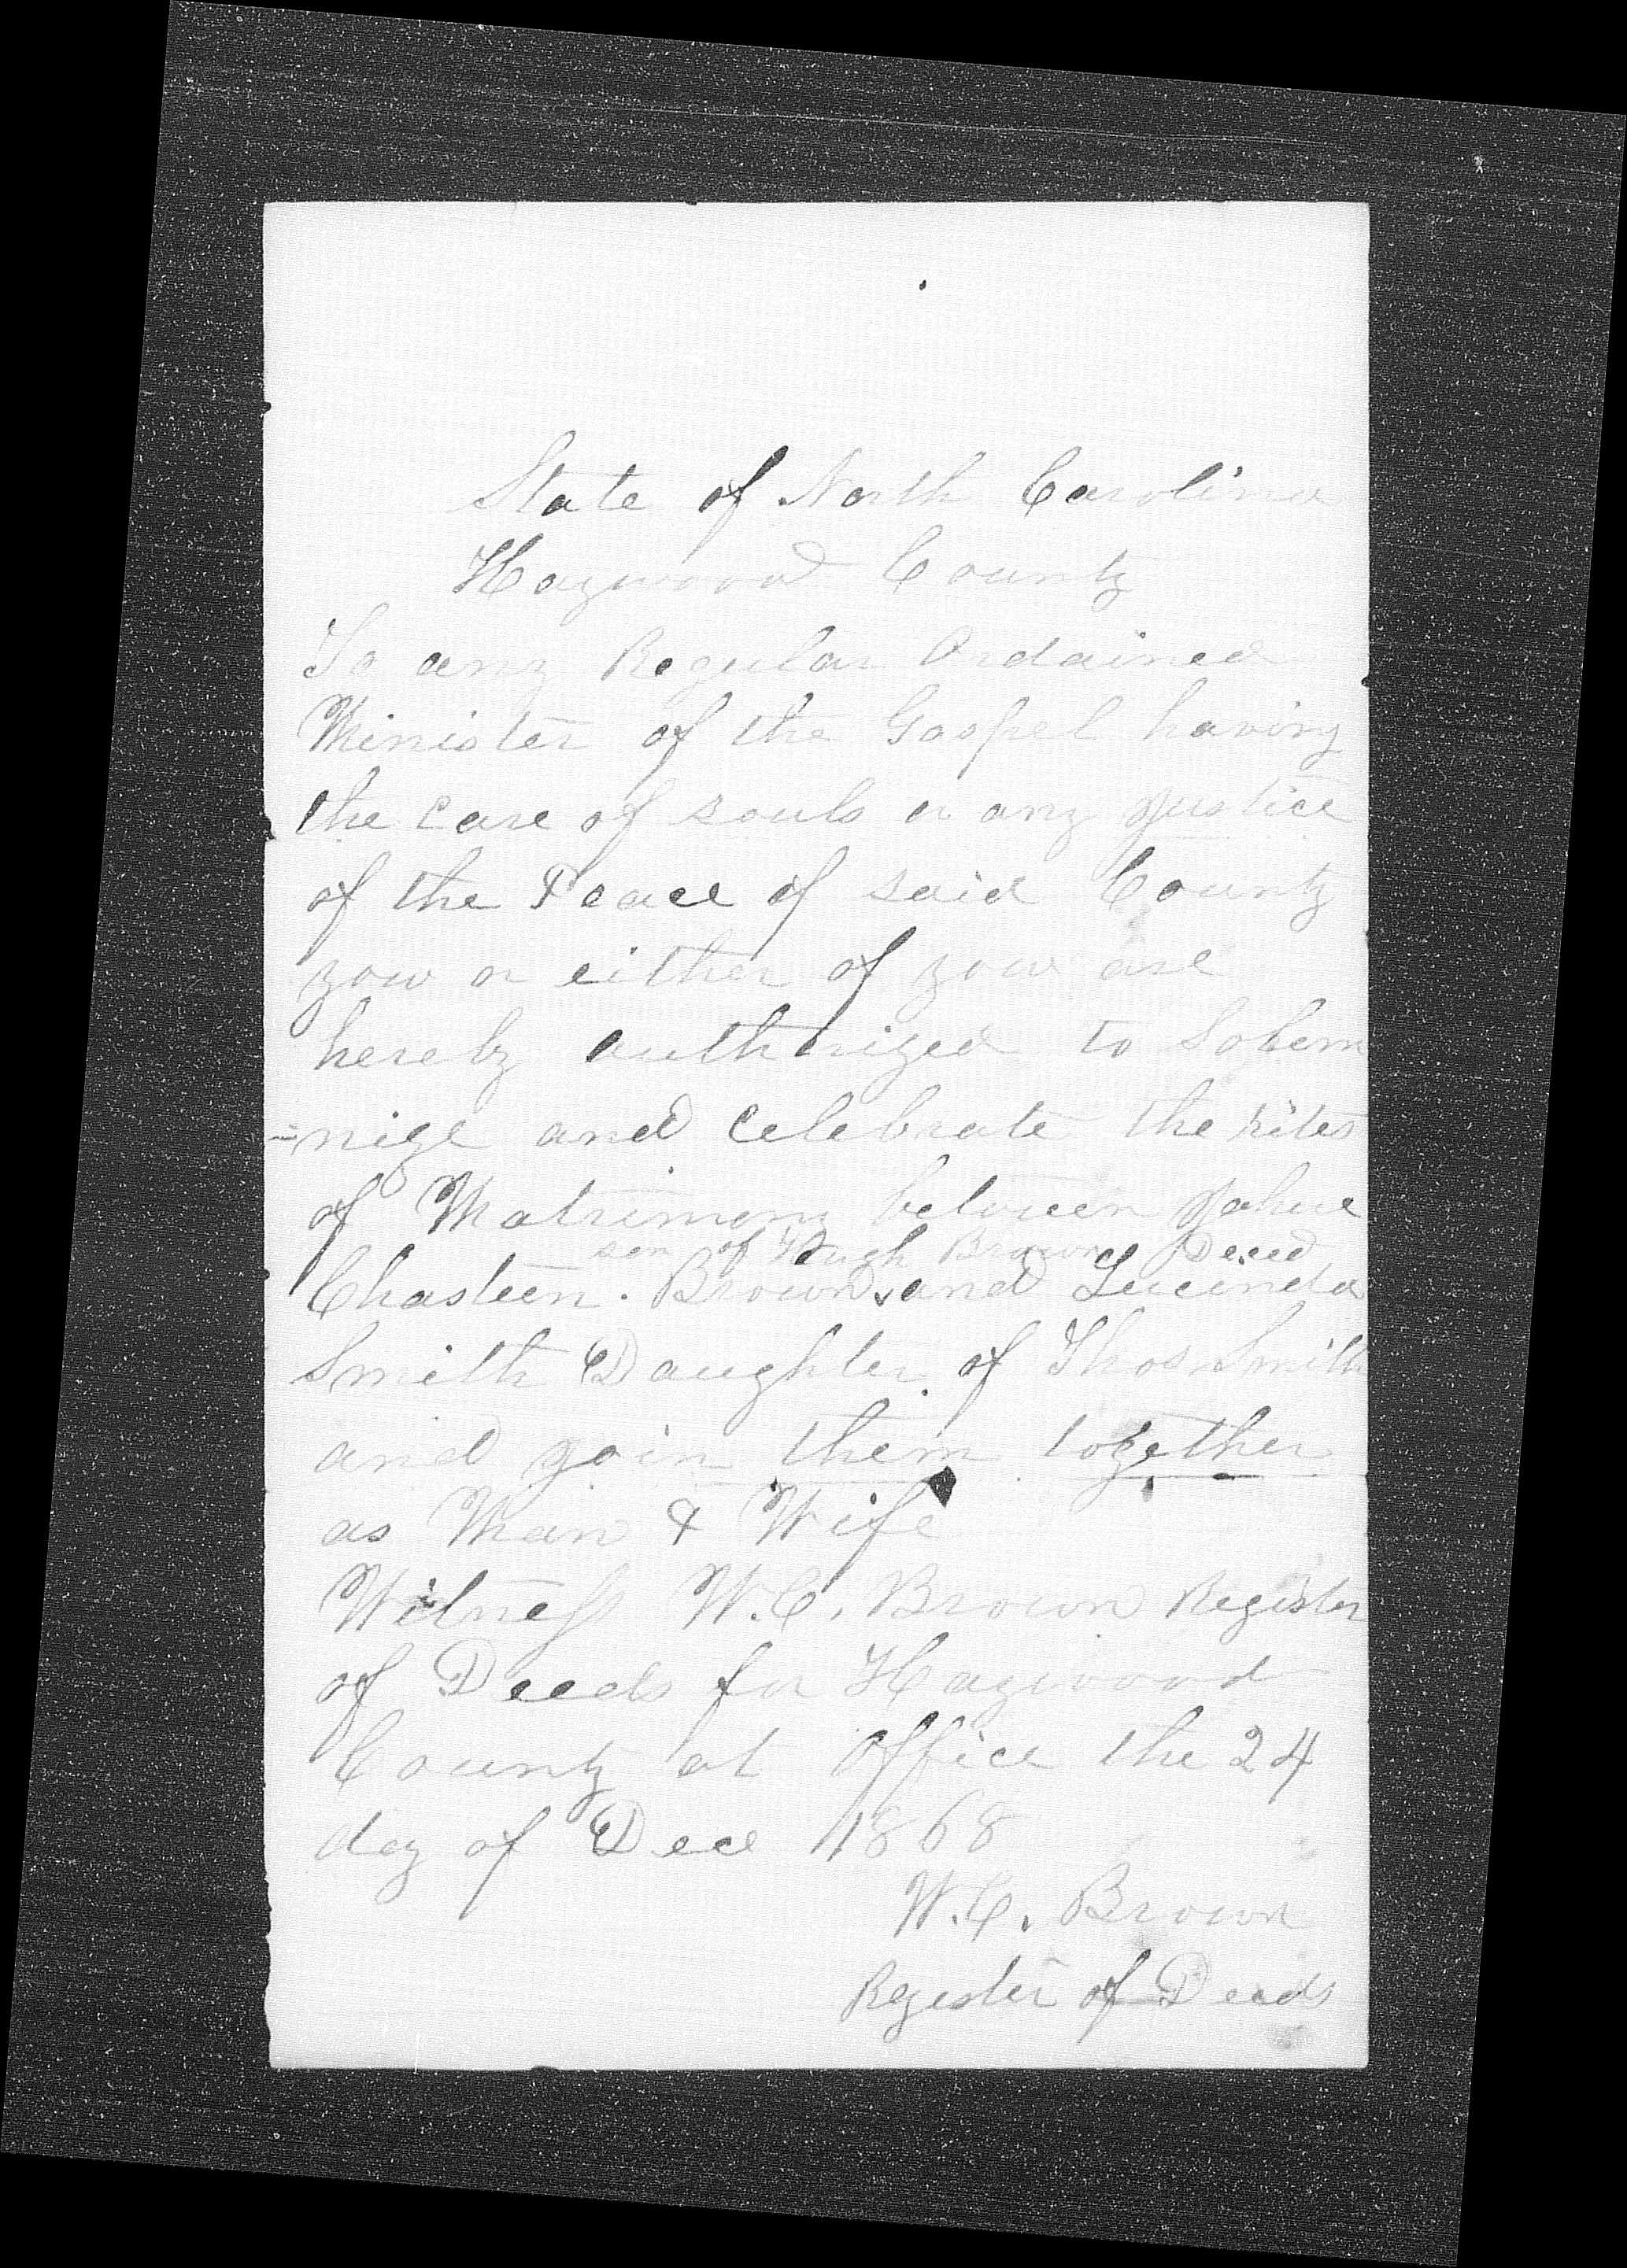 State of North Carolina
Haywood County
To any Regular Ordained
Minister of the Gospel having
the care of souls or any Justice
of the Peace of said County
you or either of you are
hereby authorized to Solem
=nize and Celebrate the rites
of Matrimony between
son of Hugh Brown Decd
Chasteen. Brown and Lucinda
Smith Daughter of Thos Smith
and join them together
as Man & Wife
Witness W.C. Brown Register
of Deeds for Haywood
County at Office the 24
day of Dec 1868
W.C. Brown
Register of Deeds